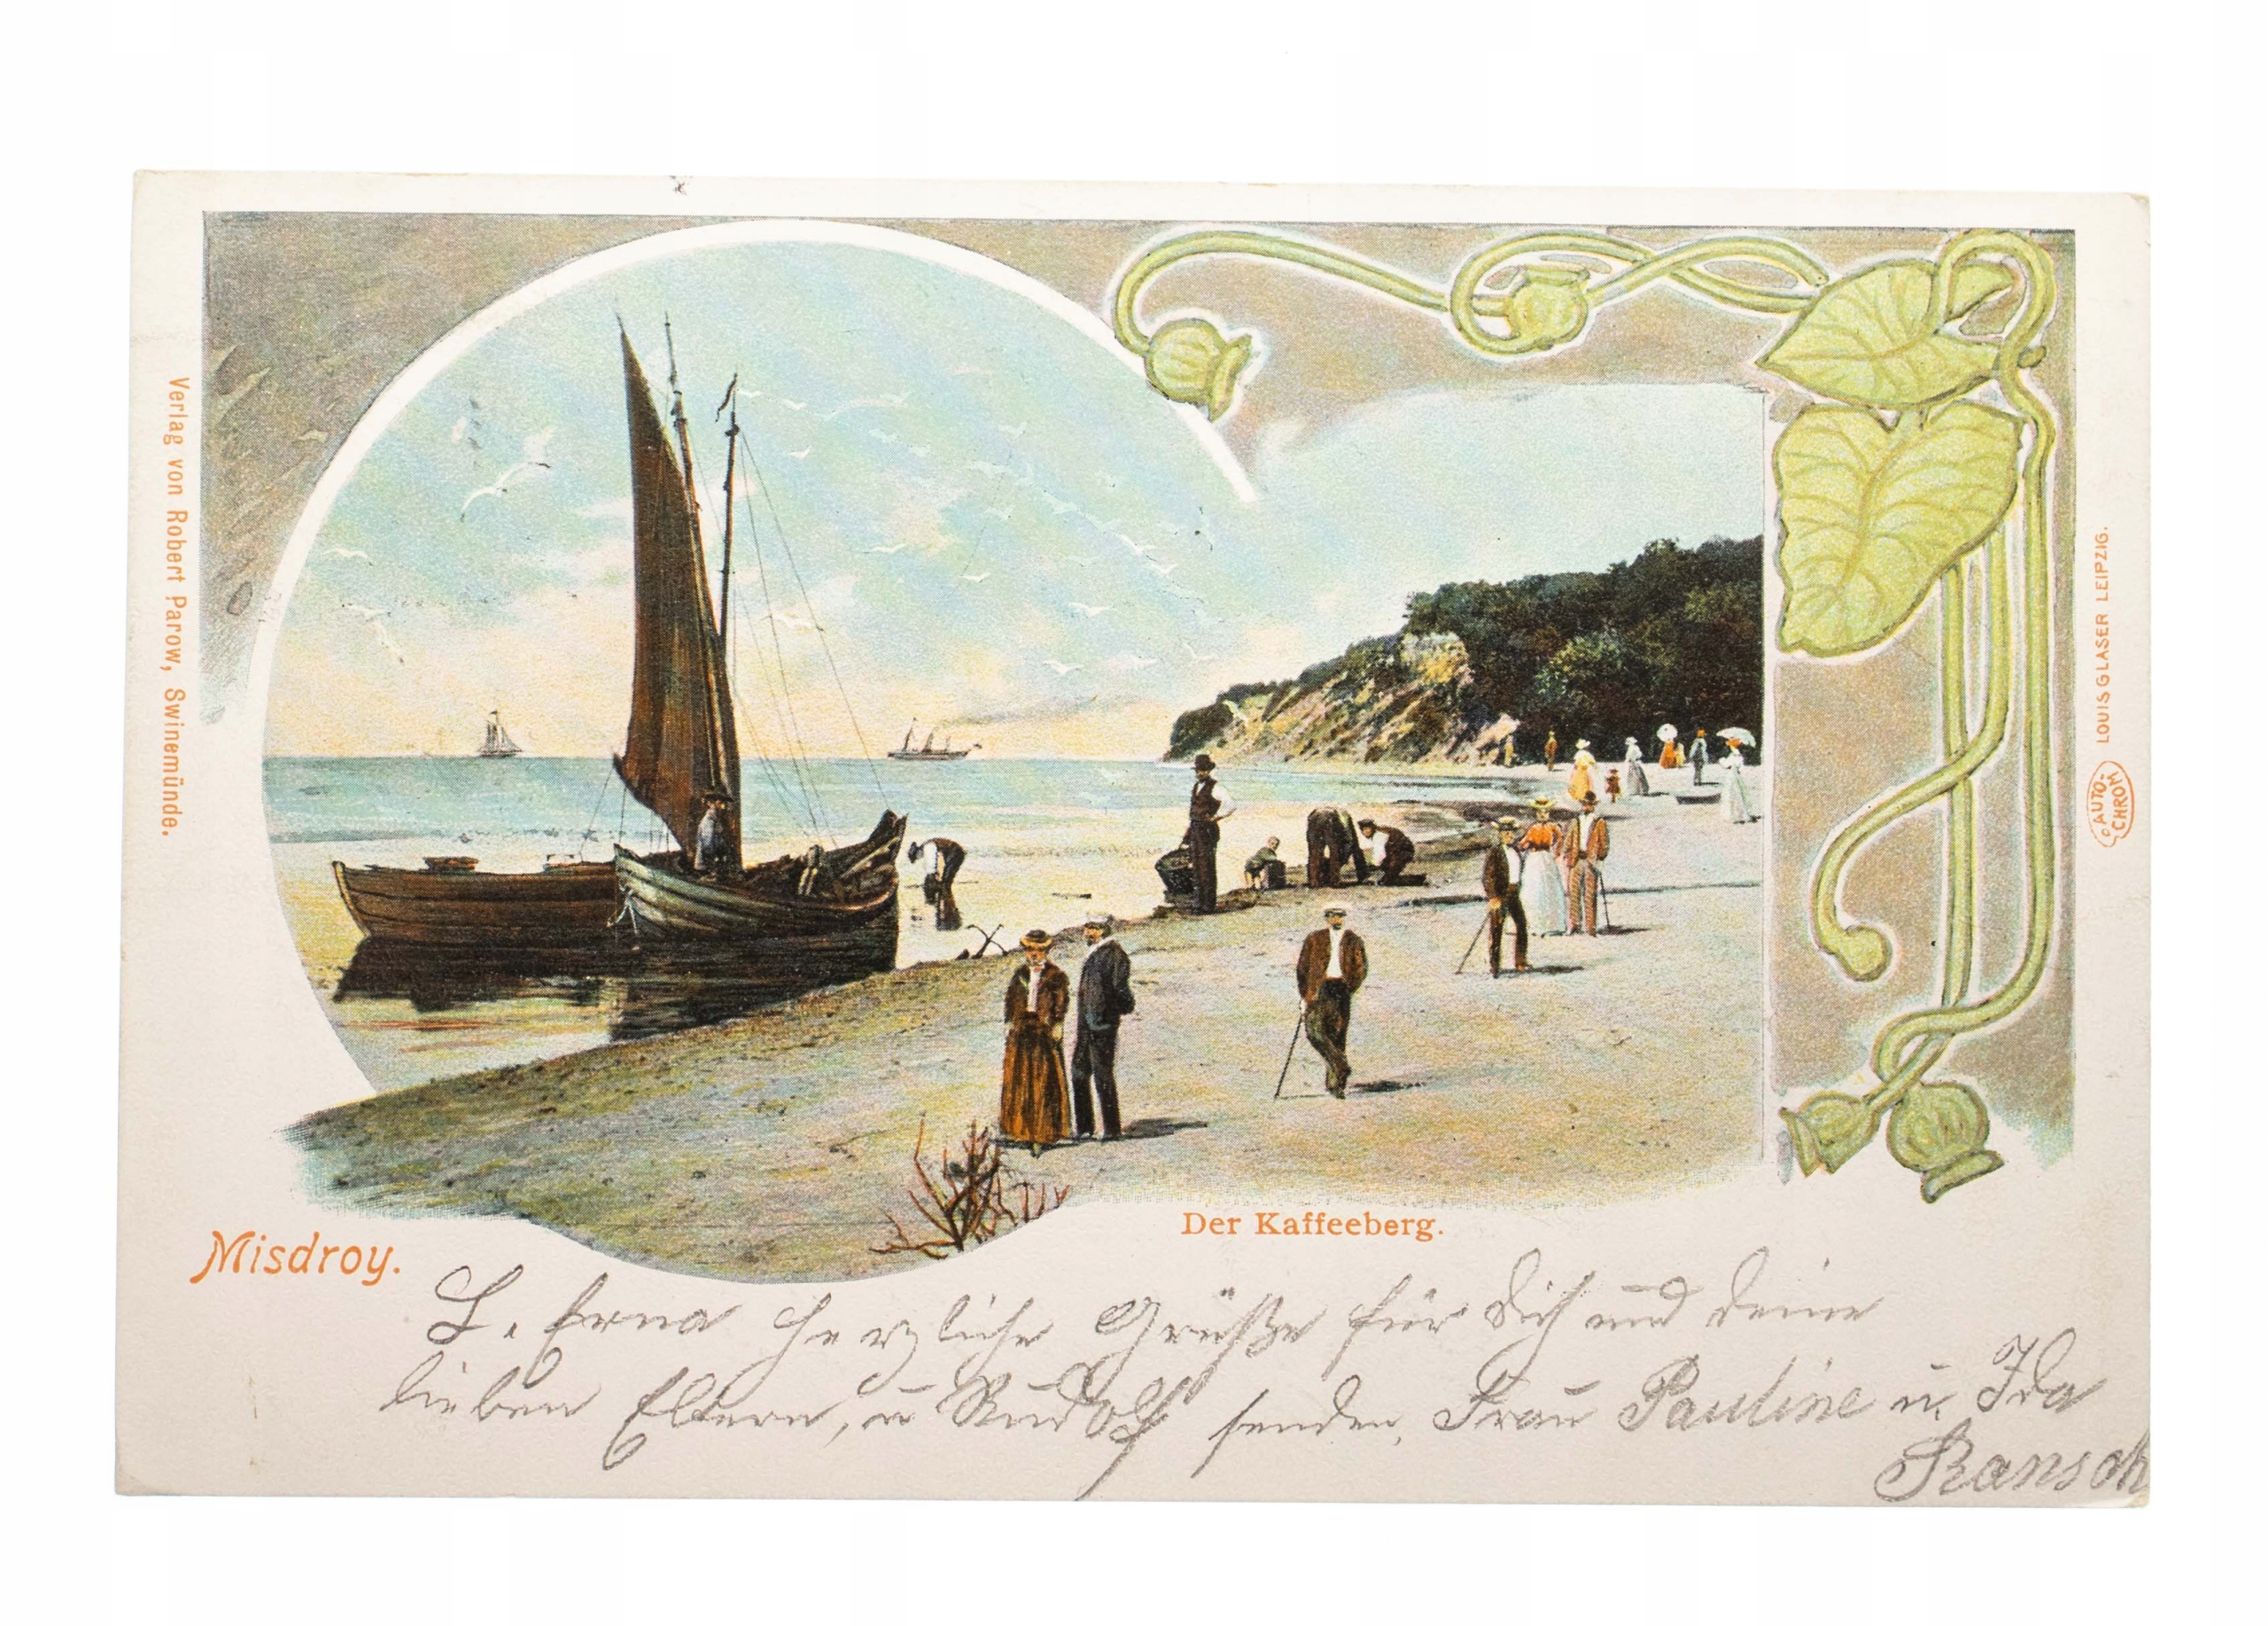 Verlag von Robert Parow, Swinemünde.
LOUIS GLASER LEIPZIG.
AUTO-
CHROM
Der Kaffeeberg.
Misdroy.
L. Erna herzliche Grüße für Dich und deine
lieben Eltern, u Rudolf senden, Frau Pauline u. Ida
Ransch